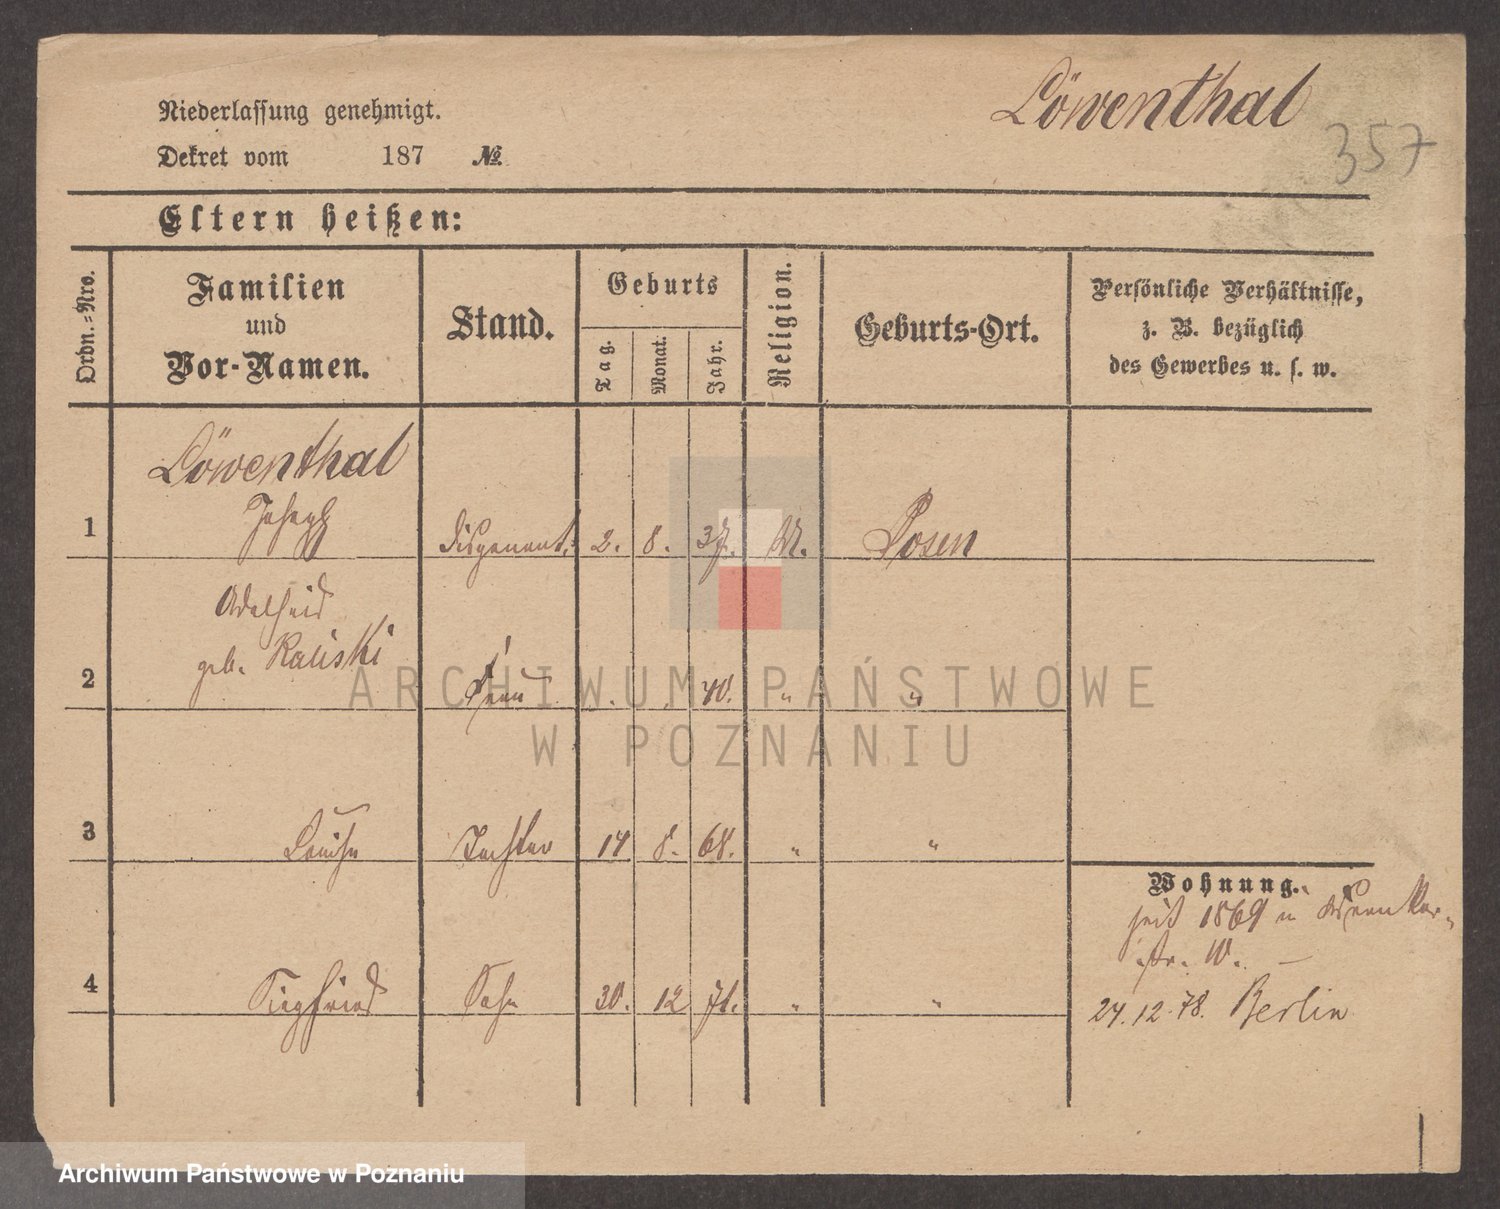 Niederlassung genehmigt.
Löwenthal
357
Dekret vom 187 №
Eltern heißen:
Ordn.-Nro.
Familien
und
Vor-Namen.
Stand.
Geburts
Tag.
Monat.
Jahr.
Religion.
Geburts-Ort.
Persönliche Verhältnisse,
z. B. bezüglich
des Gewerbes u. s. w.
Löwenthal
1 Joseph Disponent. 2. 8. 37. M. Posen
Adelheid
geb. Kaliski
2 Frau 40. " "
3 Louise Tochter 14 8. 68. " "
Wohnung.
seit 1869
str. 10. –
4 Siegfried Sohn 30. 12 71. " "
24.12.78. Berlin
ARCHIWUM PAŃSTWOWE
W POZNANIU
Archiwum Państwowe w Poznaniu